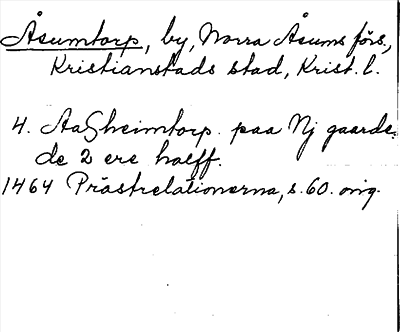 Åsumtorp, by, Norra Åsums förs.,
Kristianstads stad, Krist. l.
4. Aaßheimtorp. paa Nj gaarde.
de 2 ere halff.
1464 Prästrelationerna, s. 60. orig.